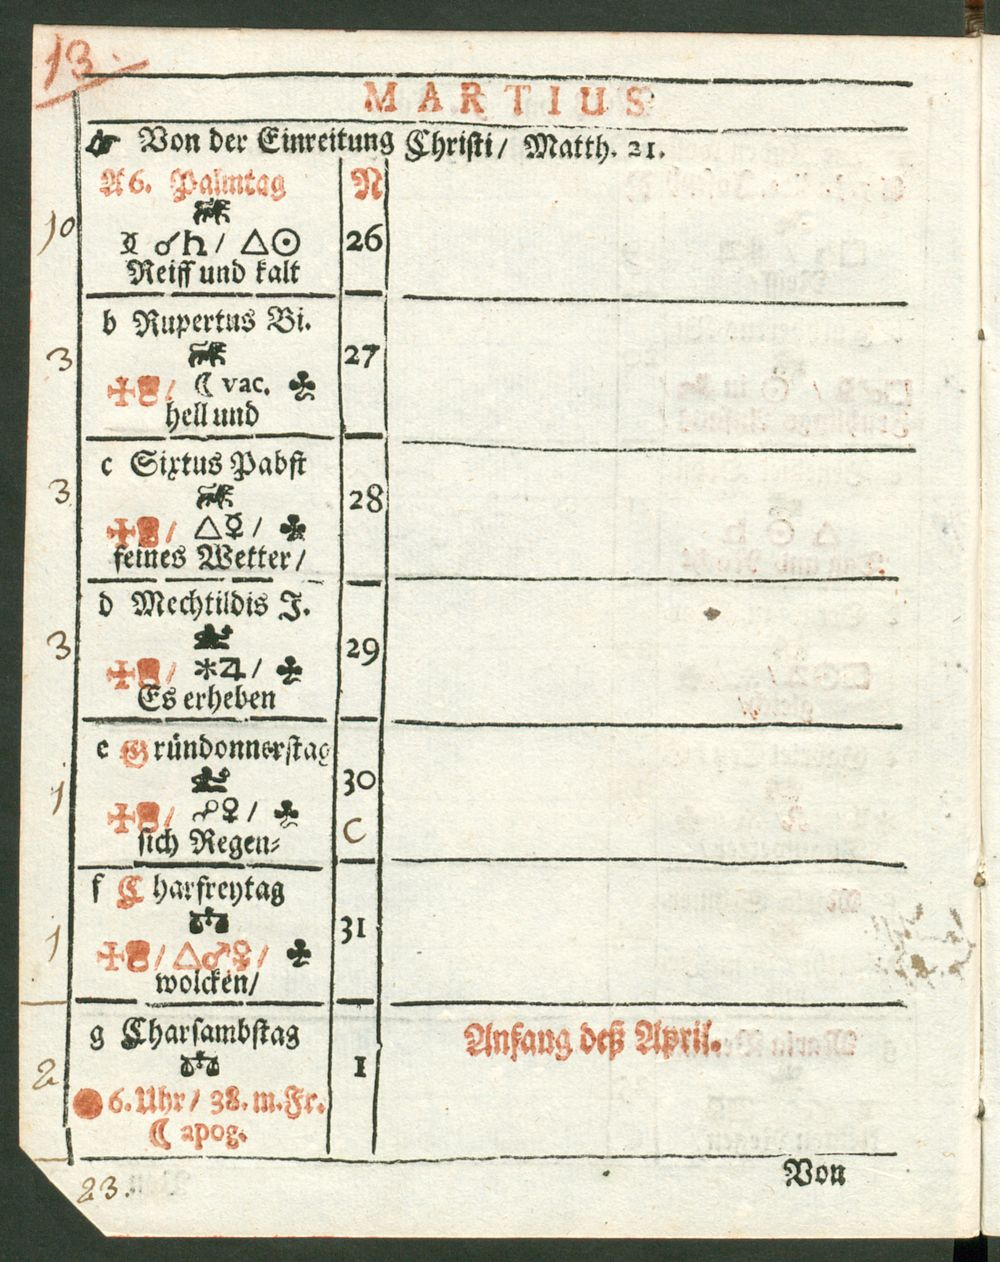 13.
MARTIUS
☞ Von der Einreitung Christi / Matth. 21.
A 6. Palmtag N
10
☿ ☌ ♄ / △ ☉ 26
Reiff und kalt
b Rupertus Bi.
3 27
✠ / ☾ vac. ♣
hell und
c Sixtus Pabst
3 28
✠ / △ ☿ / ♣
feines Wetter /
d Mechtildis J.
3 29
✠ / ⚹ ♃ / ♣
Es erheben
e Gründonnerstag
1 30
✠ / ☍ ♀ / ♣ C
sich Regen⸗
f Charfreytag
1 31
✠ / △ ♂ ♀ / ♣
wolcken /
g Charsambstag Anfang deß April.
2 1
● 6. Uhr / 38. m. Fr.
☾ apog.
Von
23.